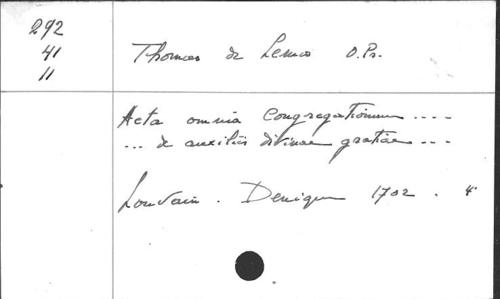 292
41
11
Thomas de Lemos O.Pr.
Acta omnia Congregationum ....
... de auxiliis divinae gratiae ...
Louvain. Denique 1702. 4°